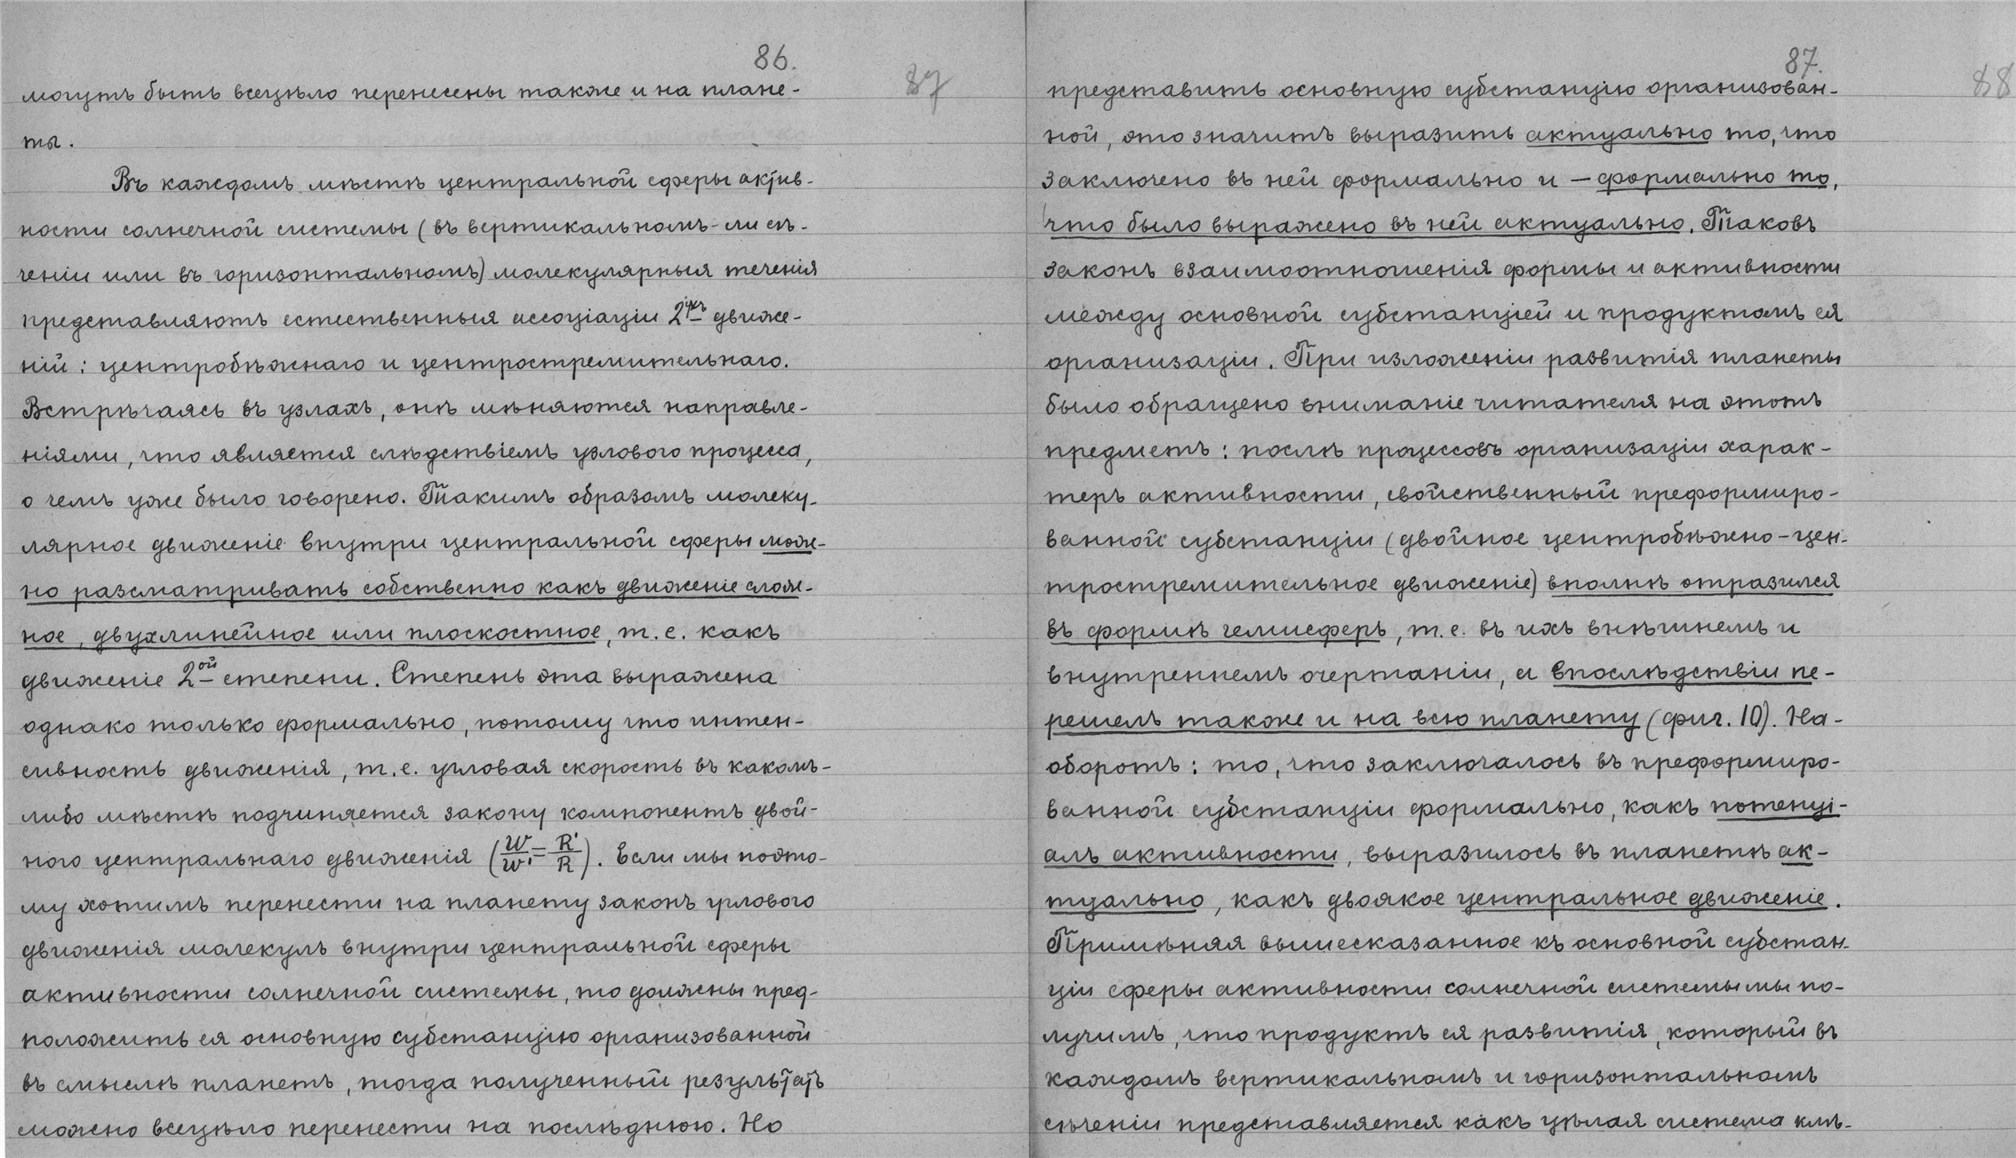 86.
87
могутъ быть всецѣло перенесены также и на плане-
ты.
Въ каждомъ мѣстѣ центральной сферы актив-
ности солнечной системы (въ вертикальномъ-ли сѣ-
ченіи или въ горизонтальномъ) молекулярныя теченія
представляютъ естественныя ассоціаціи 2ухъ движе-
ній: центробѣжнаго и центростремительнаго.
Встрѣчаясь въ узлахъ, онѣ мѣняются направле-
ніями, что является слѣдствіемъ узлового процесса,
о чемъ уже было говорено. Такимъ образомъ молеку-
лярное движеніе внутри центральной сферы мож-
но разсматривать собственно какъ движеніе слож-
ное, двухлинейное или плоскостное, т.е. какъ
движеніе 2ой степени. Степень эта выражена
однако только формально, потому что интен-
сивность движенія, т.е. угловая скорость въ какомъ-
либо мѣстѣ подчиняется закону компонентъ двой-
ного центральнаго движенія (W/W' = R'/R). Если мы поэто-
му хотимъ перенести на планету законъ углового
движенія молекулъ внутри центральной сферы
активности солнечной системы, то должны пред-
положить ея основную субстанцію организованной
въ смыслѣ планетъ, тогда полученный результатъ
можно всецѣло перенести на послѣднюю. Но
87.
88
представить основную субстанцію организован-
ной, это значитъ выразить актуально то, что
заключено въ ней формально и – формально то,
что было выражено въ ней актуально. Таковъ
законъ взаимоотношенія формы и активности
между основной субстанціей и продуктомъ ея
организаціи. При изложеніи развитія планеты
было обращено вниманіе читателя на этотъ
предметъ: послѣ процессовъ организаціи харак-
теръ активности, свойственный преформиро-
ванной субстанціи (двойное центробѣжно-цен-
тростремительное движеніе) вполнѣ отразился
въ формѣ гемисферъ, т.е. въ ихъ внѣшнемъ и
внутреннемъ очертаніи, а впослѣдствіи пе-
решелъ также и на всю планету (фиг. 10). На-
оборотъ: то, что заключалось въ преформиро-
ванной субстанціи формально, какъ потенці-
алъ активности, выразилось въ планетѣ ак-
туально, какъ двоякое центральное движеніе.
Примѣняя вышесказанное къ основной субстан-
ціи сферы активности солнечной системы мы по-
лучимъ, что продуктъ ея развитія, который въ
каждомъ вертикальномъ и горизонтальномъ
сѣченіи представляется какъ цѣлая система клѣ-